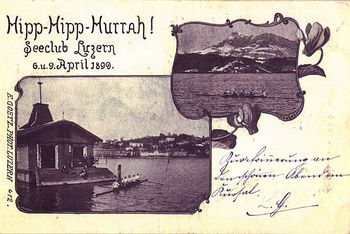 Hipp-Hipp-Hurrah!
Seeclub Luzern
6. u. 9. April 1899.
E. GOETZ, PHOT. LUZERN
412.
Zur Erinnerung an
den schönen Abend im
Kursal